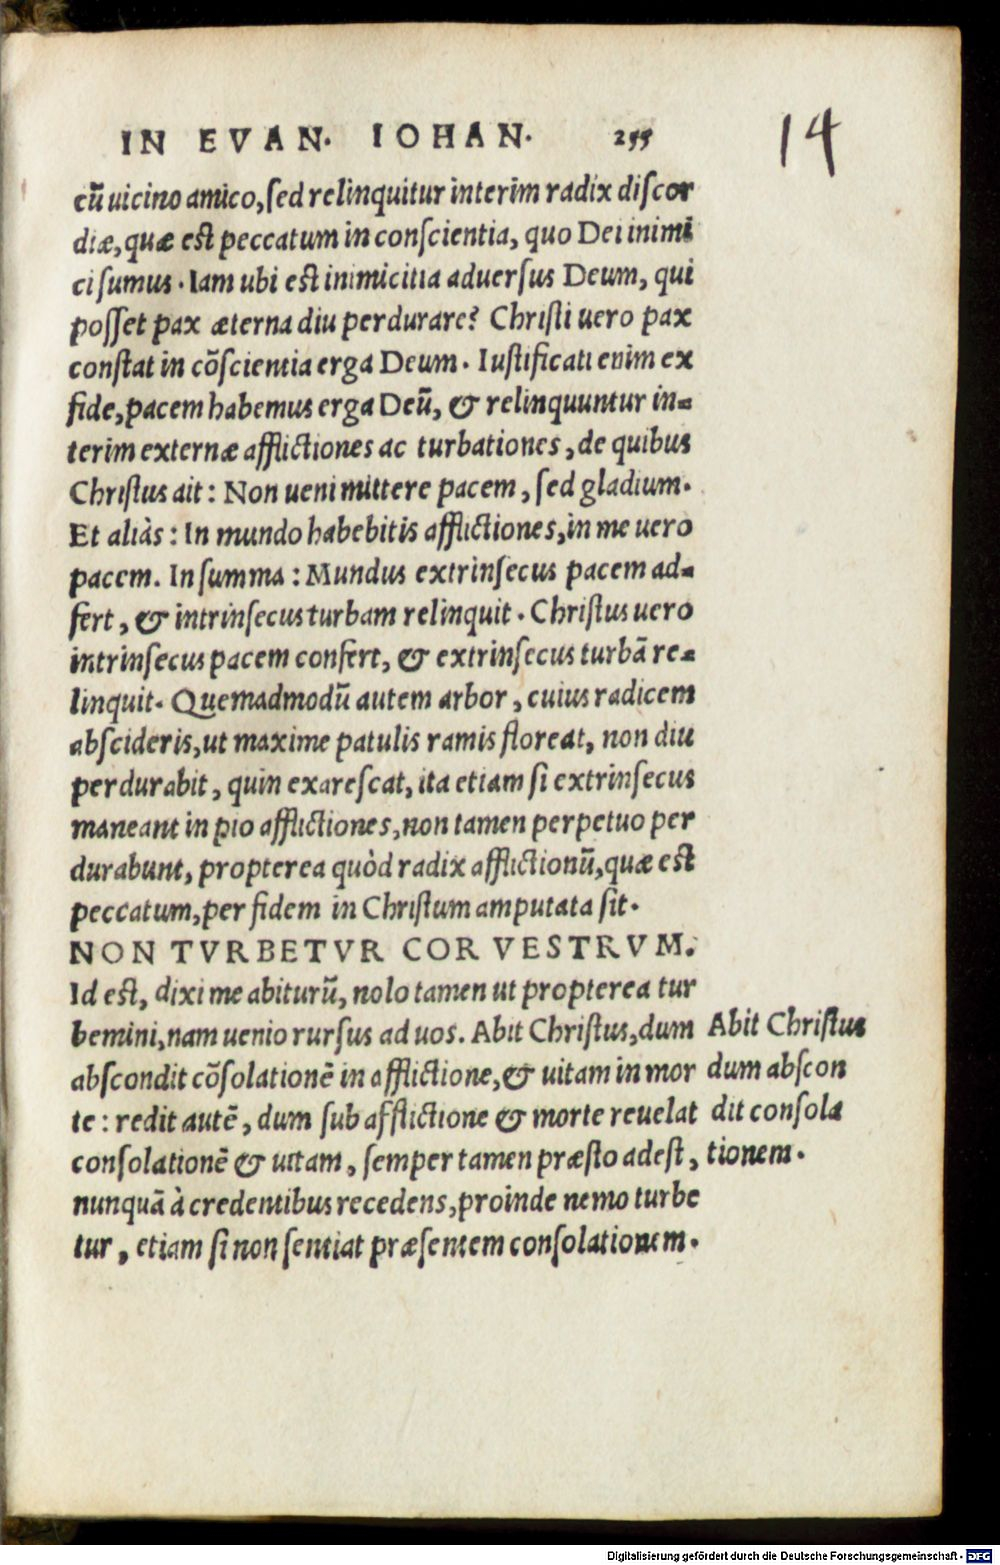 IN EVAN. IOHAN. 255
14
cū uicino amico, sed relinquitur interim radix discor
diæ, quæ est peccatum in conscientia, quo Dei inimi
ci sumus. Iam ubi est inimicitia aduersus Deum, qui
posset pax æterna diu perdurare? Christi uero pax
constat in cōscientia erga Deum. Iustificati enim ex
fide, pacem habemus erga Deū, & relinquuntur in=
terim externæ afflictiones ac turbationes, de quibus
Christus ait: Non ueni mittere pacem, sed gladium.
Et aliàs: In mundo habebitis afflictiones, in me uero
pacem. In summa: Mundus extrinsecus pacem ad=
fert, & intrinsecus turbam relinquit. Christus uero
intrinsecus pacem confert, & extrinsecus turbā re=
linquit. Quemadmodū autem arbor, cuius radicem
abscideris, ut maxime patulis ramis floreat, non diu
perdurabit, quin exarescat, ita etiam si extrinsecus
maneant in pio afflictiones, non tamen perpetuo per
durabunt, propterea quòd radix afflictionū, quæ est
peccatum, per fidem in Christum amputata sit.
NON TVRBETVR COR VESTRVM.
Id est, dixi me abiturū, nolo tamen ut propterea tur
bemini, nam uenio rursus ad uos. Abit Christus, dum
abscondit cōsolationē in afflictione, & uitam in mor
te: redit autē, dum sub afflictione & morte reuelat
consolationē & uitam, semper tamen præsto adest,
nunquā à credentibus recedens, proinde nemo turbe
tur, etiam si non sentiat præsentem consolationem.
Abit Christus
dum abscon
dit consola
tionem.
Digitalisierung gefördert durch die Deutsche Forschungsgemeinschaft - DFG